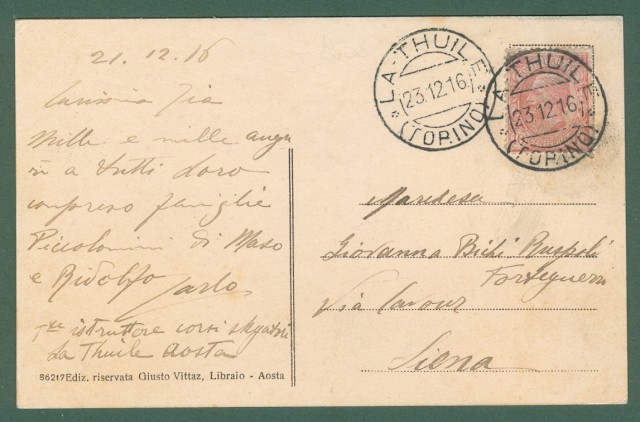 21.12.16
Carissima Zia
Mille e mille augu
ri a tutti loro
compreso famiglie
Piccolomini di Maso
e Ridolfo
Carlo
istruttore corsi skyatori
La Thuile Aosta
86217 Ediz. riservata Giusto Vittaz, Libraio - Aosta
LA-THUILE
23.12.16
(TORINO)
LA-THUILE
23.12.16
(TORINO)
Marchesa
Giovanna Bichi Ruspoli
Forteguerri
Via Cavour
Siena